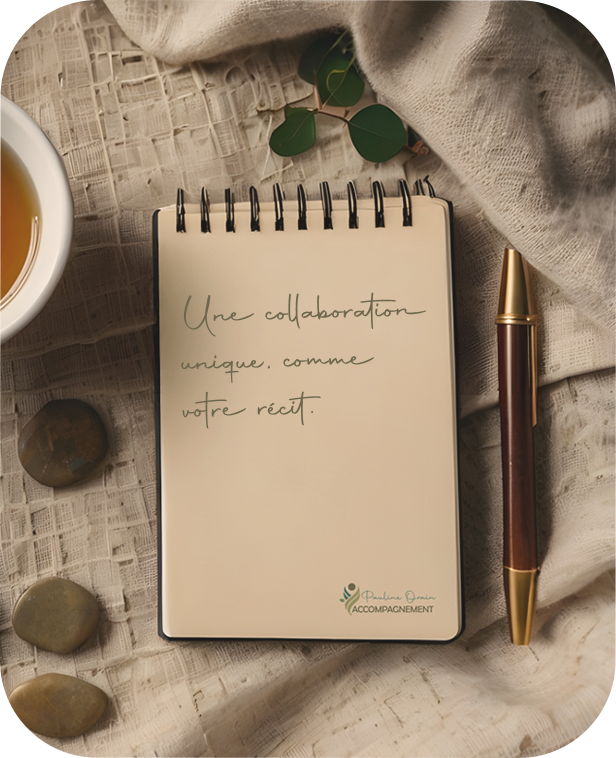 Une collaboration
unique, comme
votre récit.
Pauline Orain
ACCOMPAGNEMENT